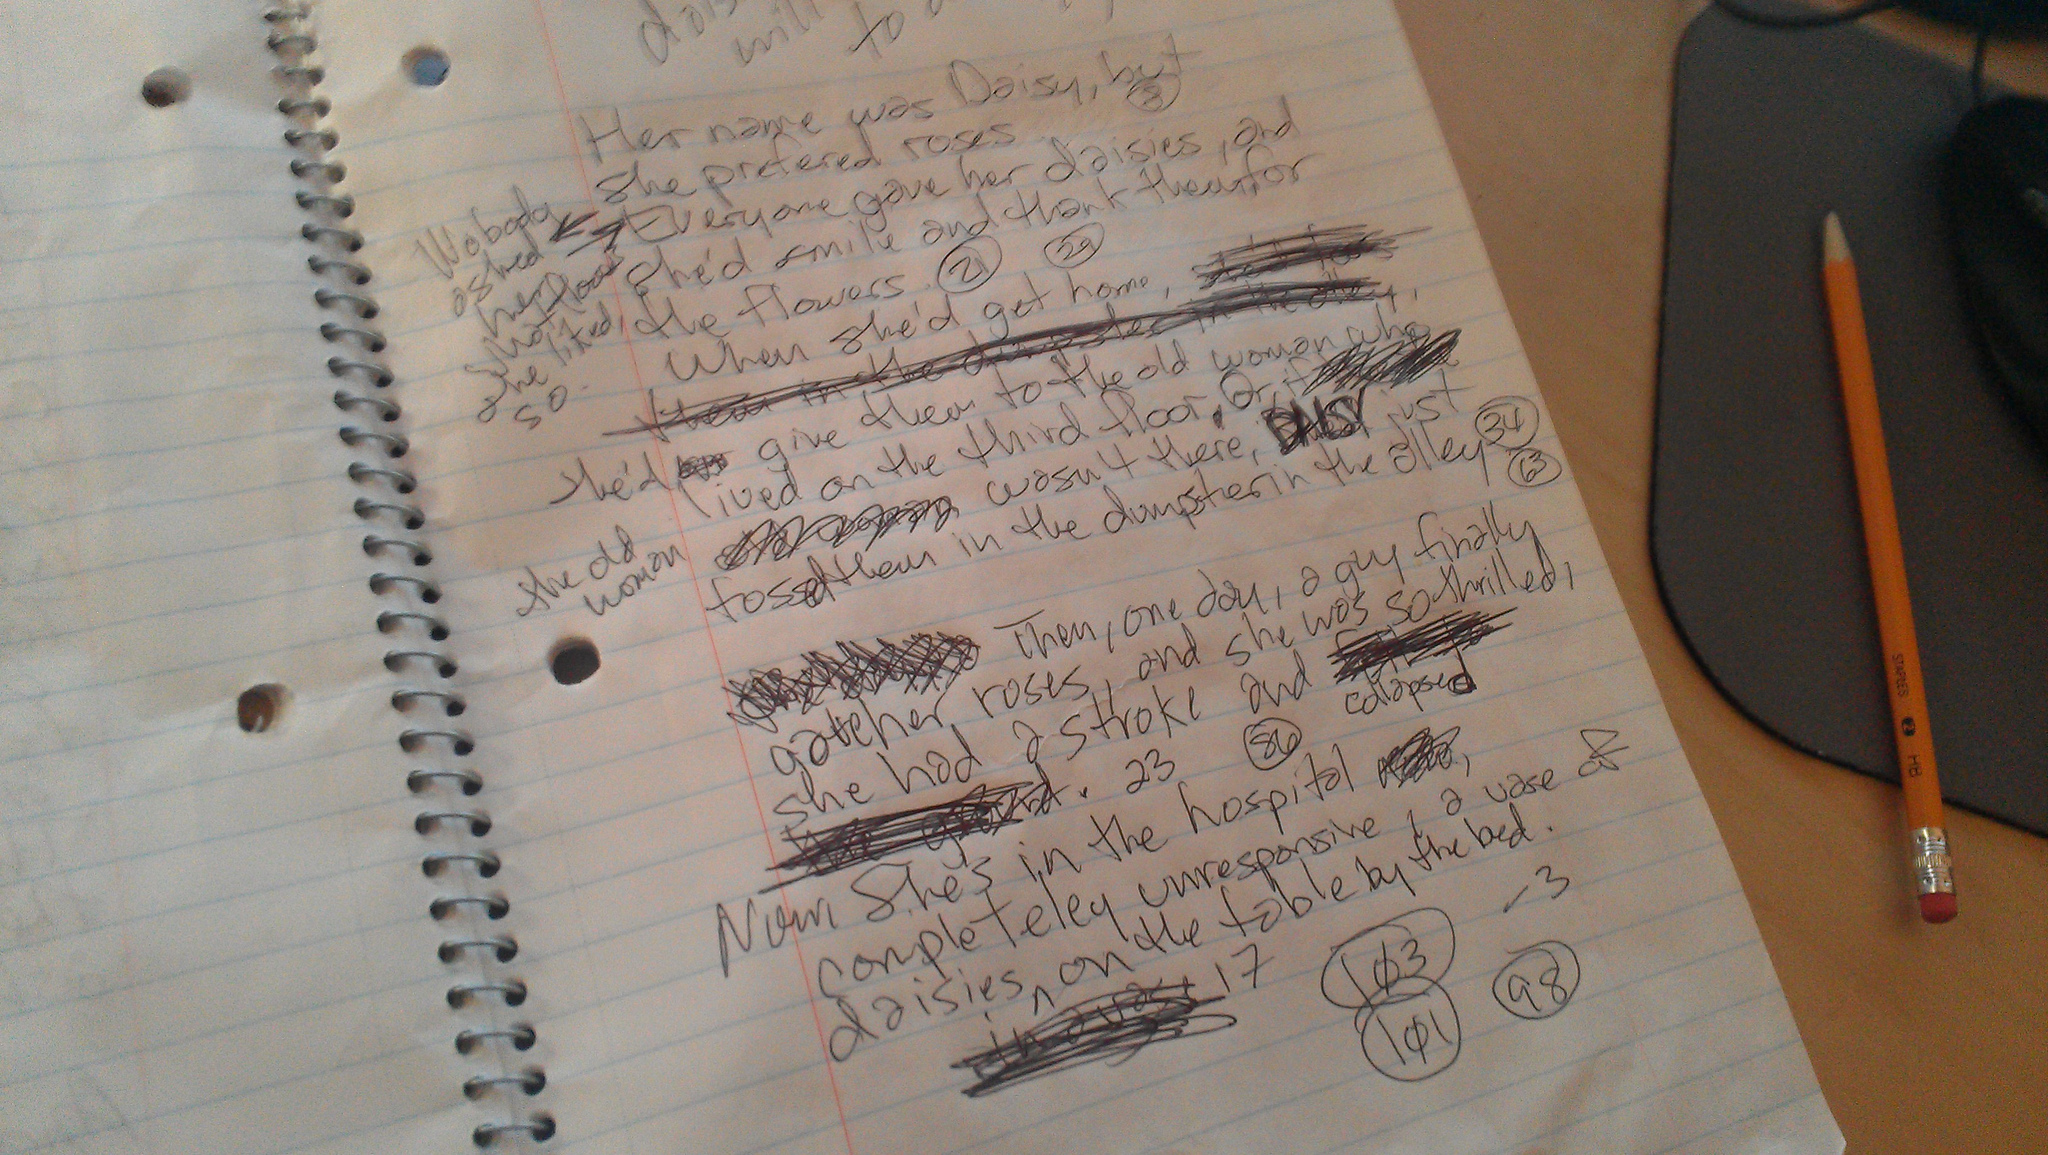 dais
will
to
Her name was Daisy, but
8
she prefered roses
Nobody
asked
her
what flower
she liked,
so.
Everyone gave her daisies, and
she'd smile and thank them for
the flowers. 21 29
When she'd get home,
them in the dumpster in the alley.
she'd give them to the old woman who
lived on the third floor. Or, if
the old
woman
wasn't there, just
34
63
tossed them in the dumpster in the alley
Then, one day, a guy finally
gave her roses, and she was so thrilled,
she had a stroke and
collapsed
the ground. 23 86
Now, She's in the hospital,
completeley unresponsive, a vase of
daisies ^ on the table by the bed.
in a vase 17
-3
103
101
98
STAPLES 2 HB